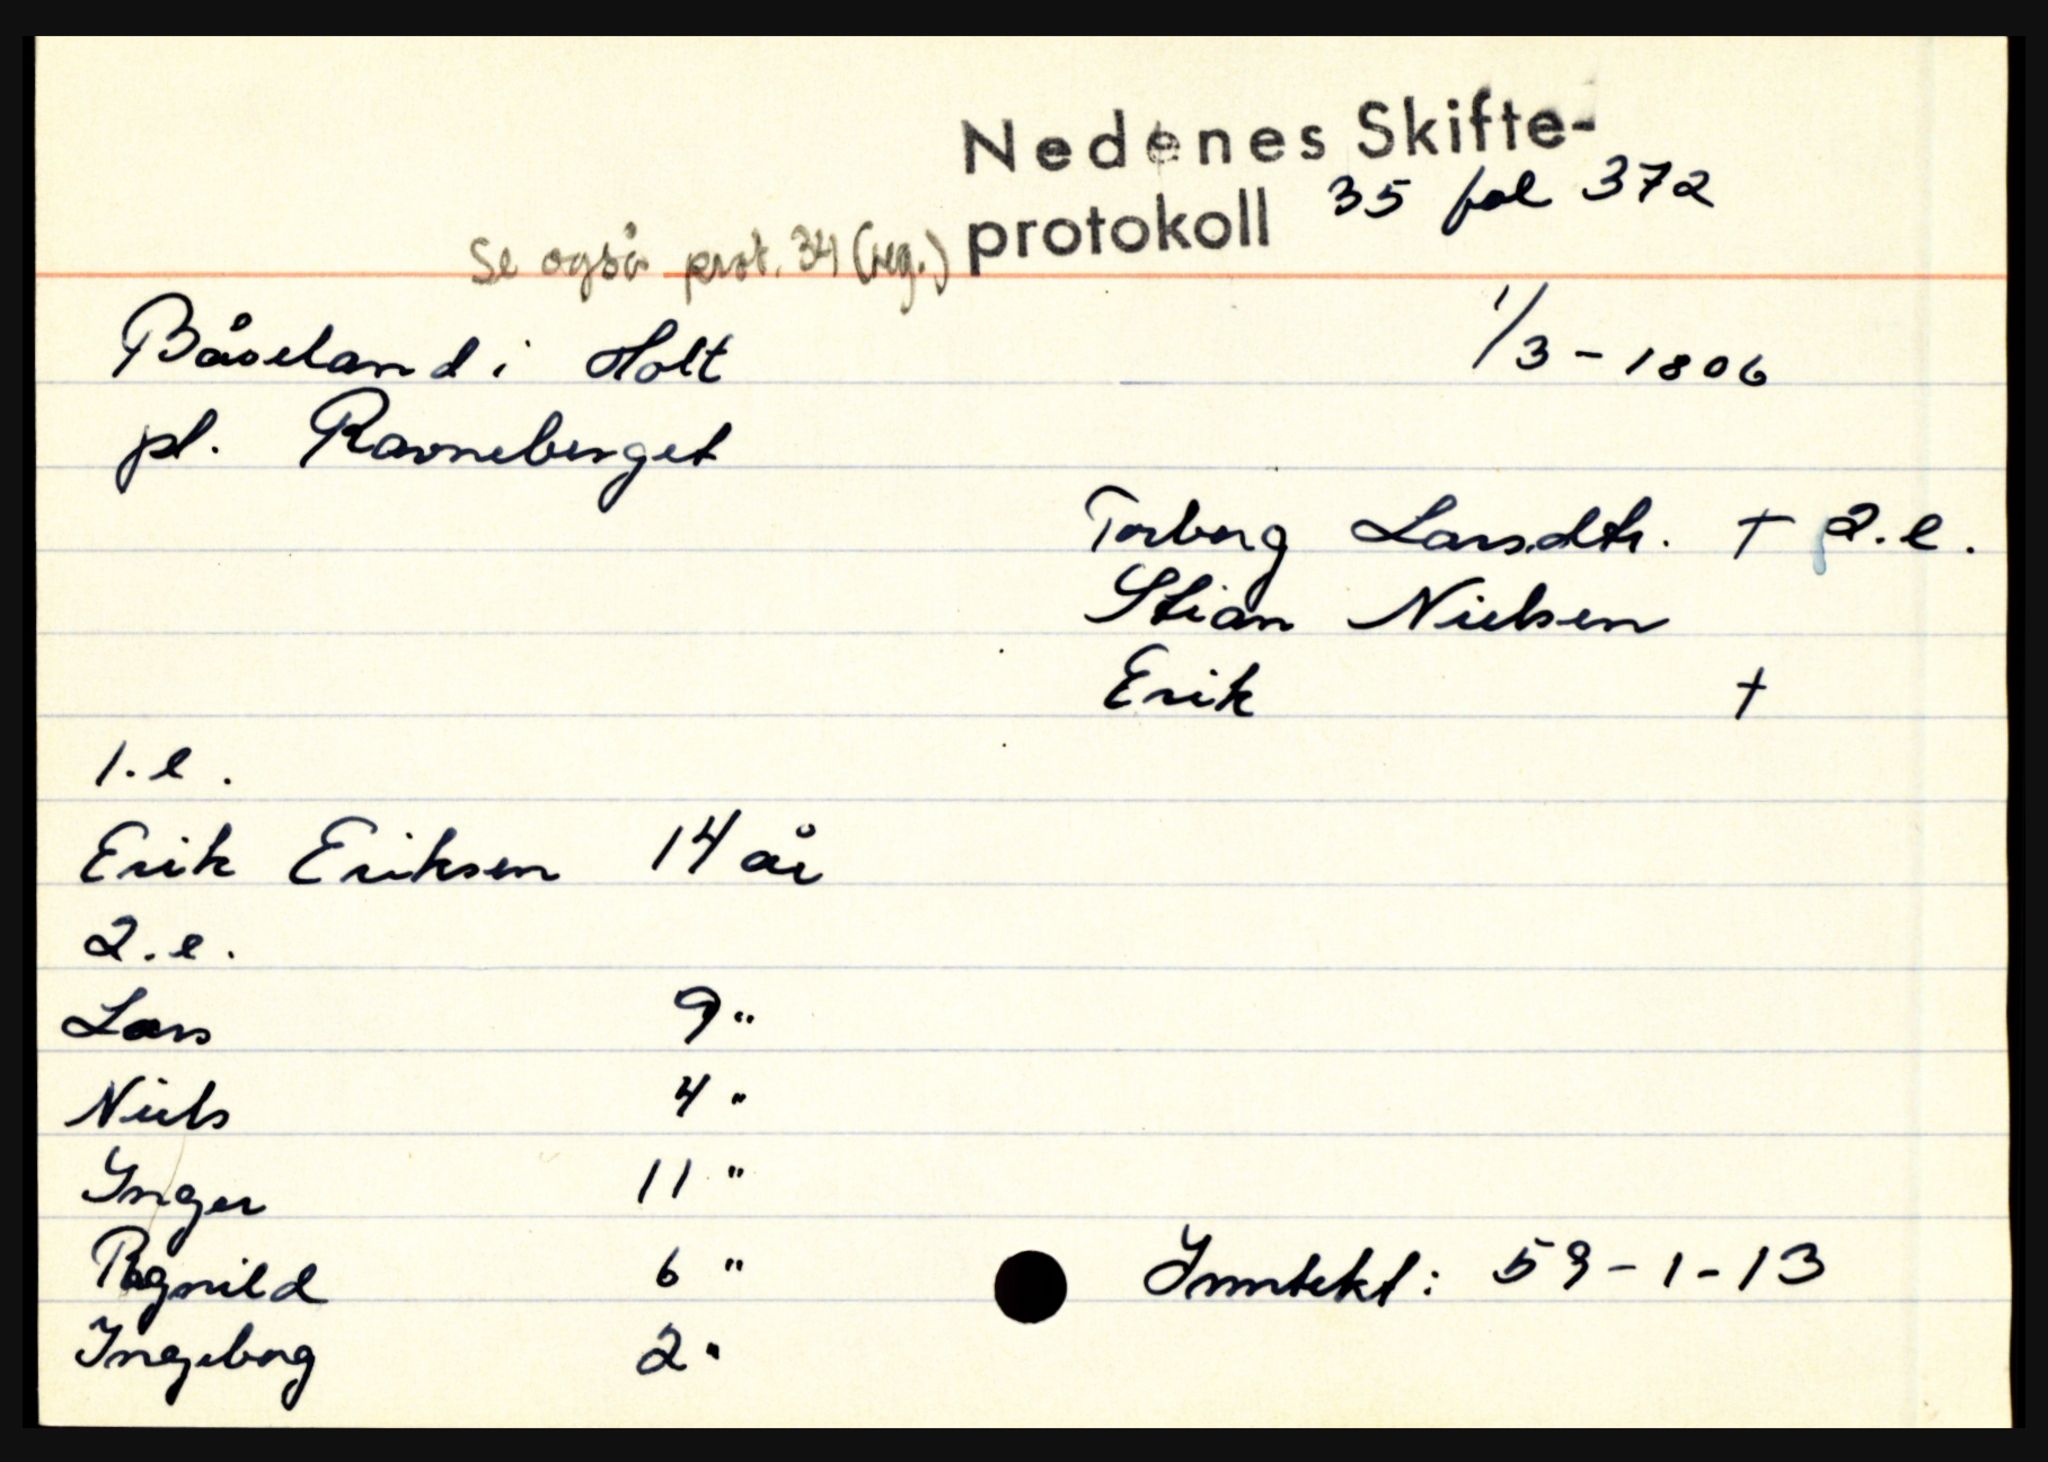 Nedenes Skifte-
protokoll 35 fol 372
Se også prot. 34 (reg.)
Båseland i Holt 1/3 - 1806
pl. Ravneberget
Torborg Larsdtr. † 2. e.
Stian Nielsen
Erik †
1. e.
Erik Eriksen 14 år
2. e.
Lars 9 "
Niels 4 "
Ynger 11 "
Ragnild 6 " Inntekt: 59-1-13
Ingeborg 2 "